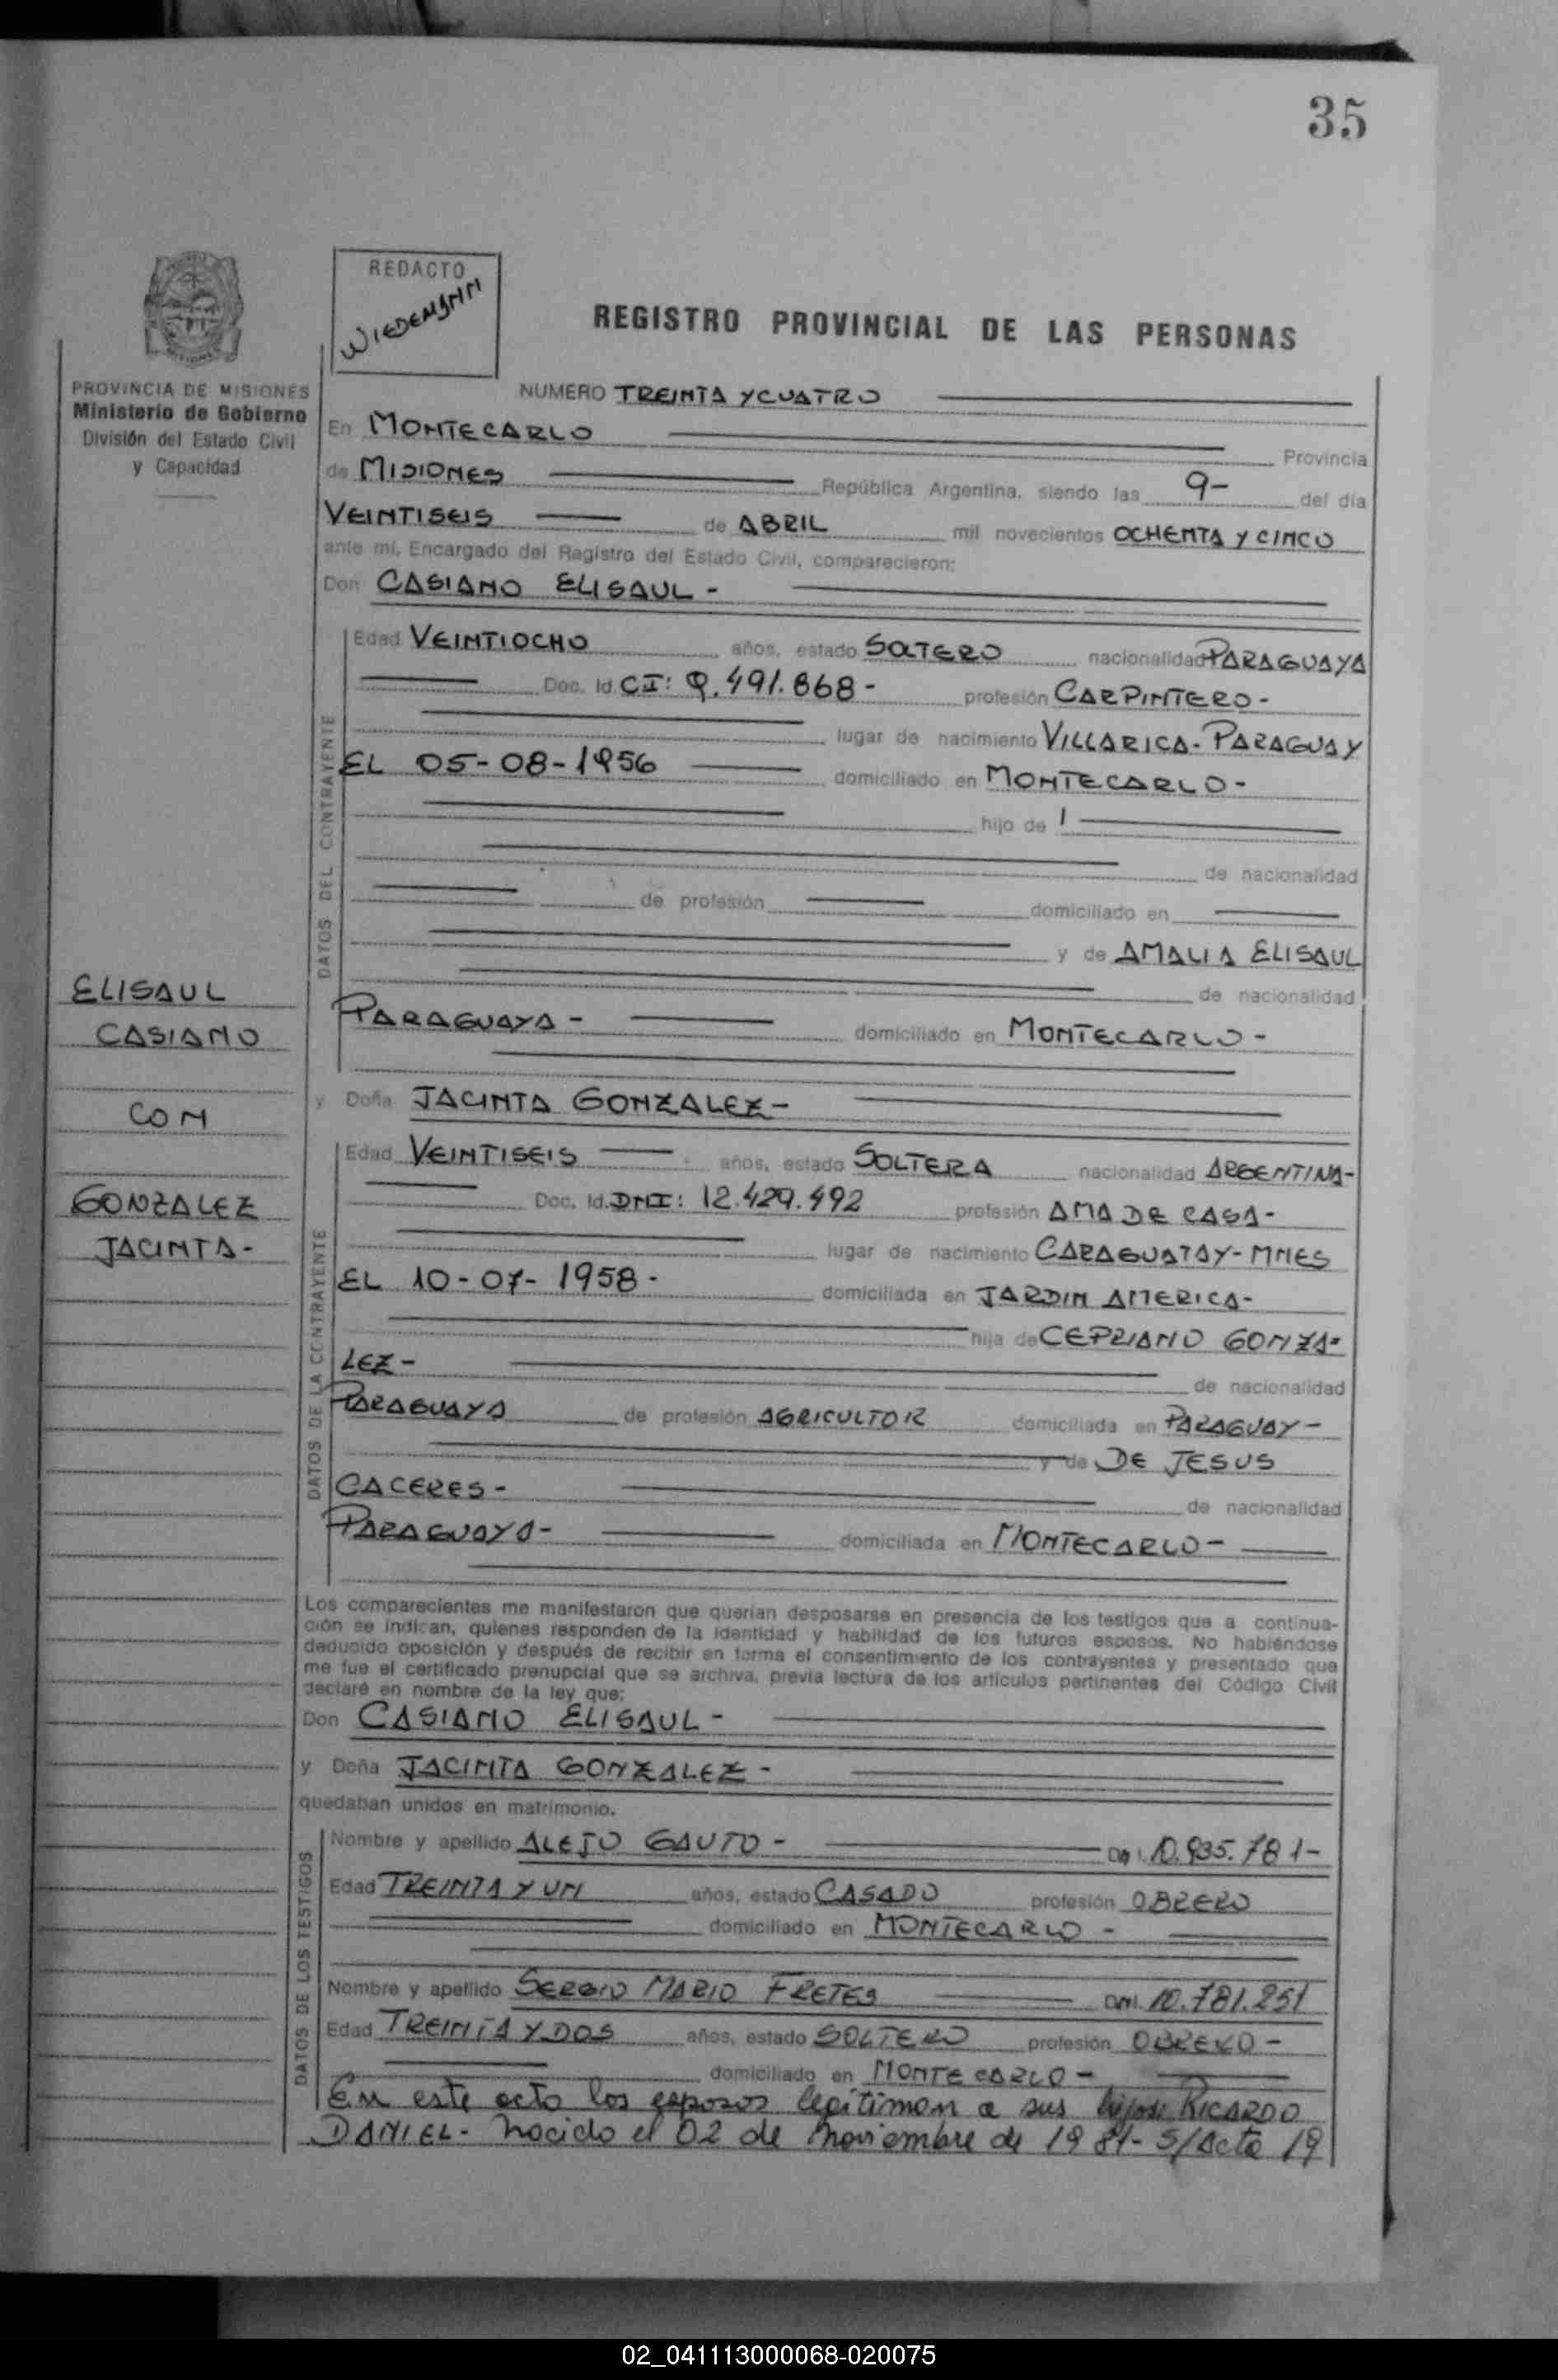 35
REDACTO
WIEDEMANN
REGISTRO PROVINCIAL DE LAS PERSONAS
PROVINCIA DE MISIONES
Ministerio de Gobierno
División del Estado Civil
y Capacidad
NUMERO TREINTA Y CUATRO
En MONTECARLO
Provincia
de MISIONES República Argentina, siendo las 9- del día
VEINTISEIS de ABRIL mil novecientos OCHENTA Y CINCO
ante mí, Encargado del Registro del Estado Civil, comparecieron:
Don CASIANO ELISAUL -
DATOS DEL CONTRAYENTE
Edad VEINTIOCHO años, estado SOLTERO nacionalidad PARAGUAYA
Doc. Id. CI: 9.491.868- profesión CARPINTERO-
lugar de nacimiento VILLARICA- PARAGUAY
EL 05-08-1956 domiciliado en MONTECARLO-
hijo de
de nacionalidad
de profesión domiciliado en
y de AMALIA ELISAUL
de nacionalidad
PARAGUAYA- domiciliado en MONTECARLO-
ELISAUL
CASIANO
CON
GONZALEZ
JACINTA-
y Doña JACINTA GONZALEZ-
DATOS DE LA CONTRAYENTE
Edad VEINTISEIS años, estado SOLTERA nacionalidad ARGENTINA-
Doc. Id. DNI: 12.429.492 profesión AMA DE CASA-
lugar de nacimiento CARAGUATAY-MNES
EL 10-07-1958- domiciliada en JARDIN AMERICA-
hija de CEPRIANO GONZA-
LEZ-
de nacionalidad
PARAGUAYA de profesión AGRICULTOR domiciliada en PARAGUAY-
y de DE JESUS
CACERES-
de nacionalidad
PARAGUAYA- domiciliada en MONTECARLO-
Los comparecientes me manifestaron que querían desposarse en presencia de los testigos que a continua-
ción se indican, quienes responden de la identidad y habilidad de los futuros esposos. No habiéndose
deducido oposición y después de recibir en forma el consentimiento de los contrayentes y presentado que
me fue el certificado prenupcial que se archiva, previa lectura de los artículos pertinentes del Código Civil
declaré en nombre de la ley que:
Don CASIANO ELISAUL-
y Doña JACINTA GONZALEZ-
quedaban unidos en matrimonio.
DATOS DE LOS TESTIGOS
Nombre y apellido ALEJO GAUTO- 10.935.781-
Edad TREINTA Y UN años, estado CASADO profesión OBRERO
domiciliado en MONTECARLO-
Nombre y apellido SERGIO MARIO FRETES DNI. 10.781.251
Edad TREINTA Y DOS años, estado SOLTERO profesión OBRERO-
domiciliado en MONTECARLO-
En este acto los esposos legitiman a sus hijos: RICARDO
DANIEL- nacido el 02 de noviembre de 1981- S/Acta 19
02_041113000068-020075